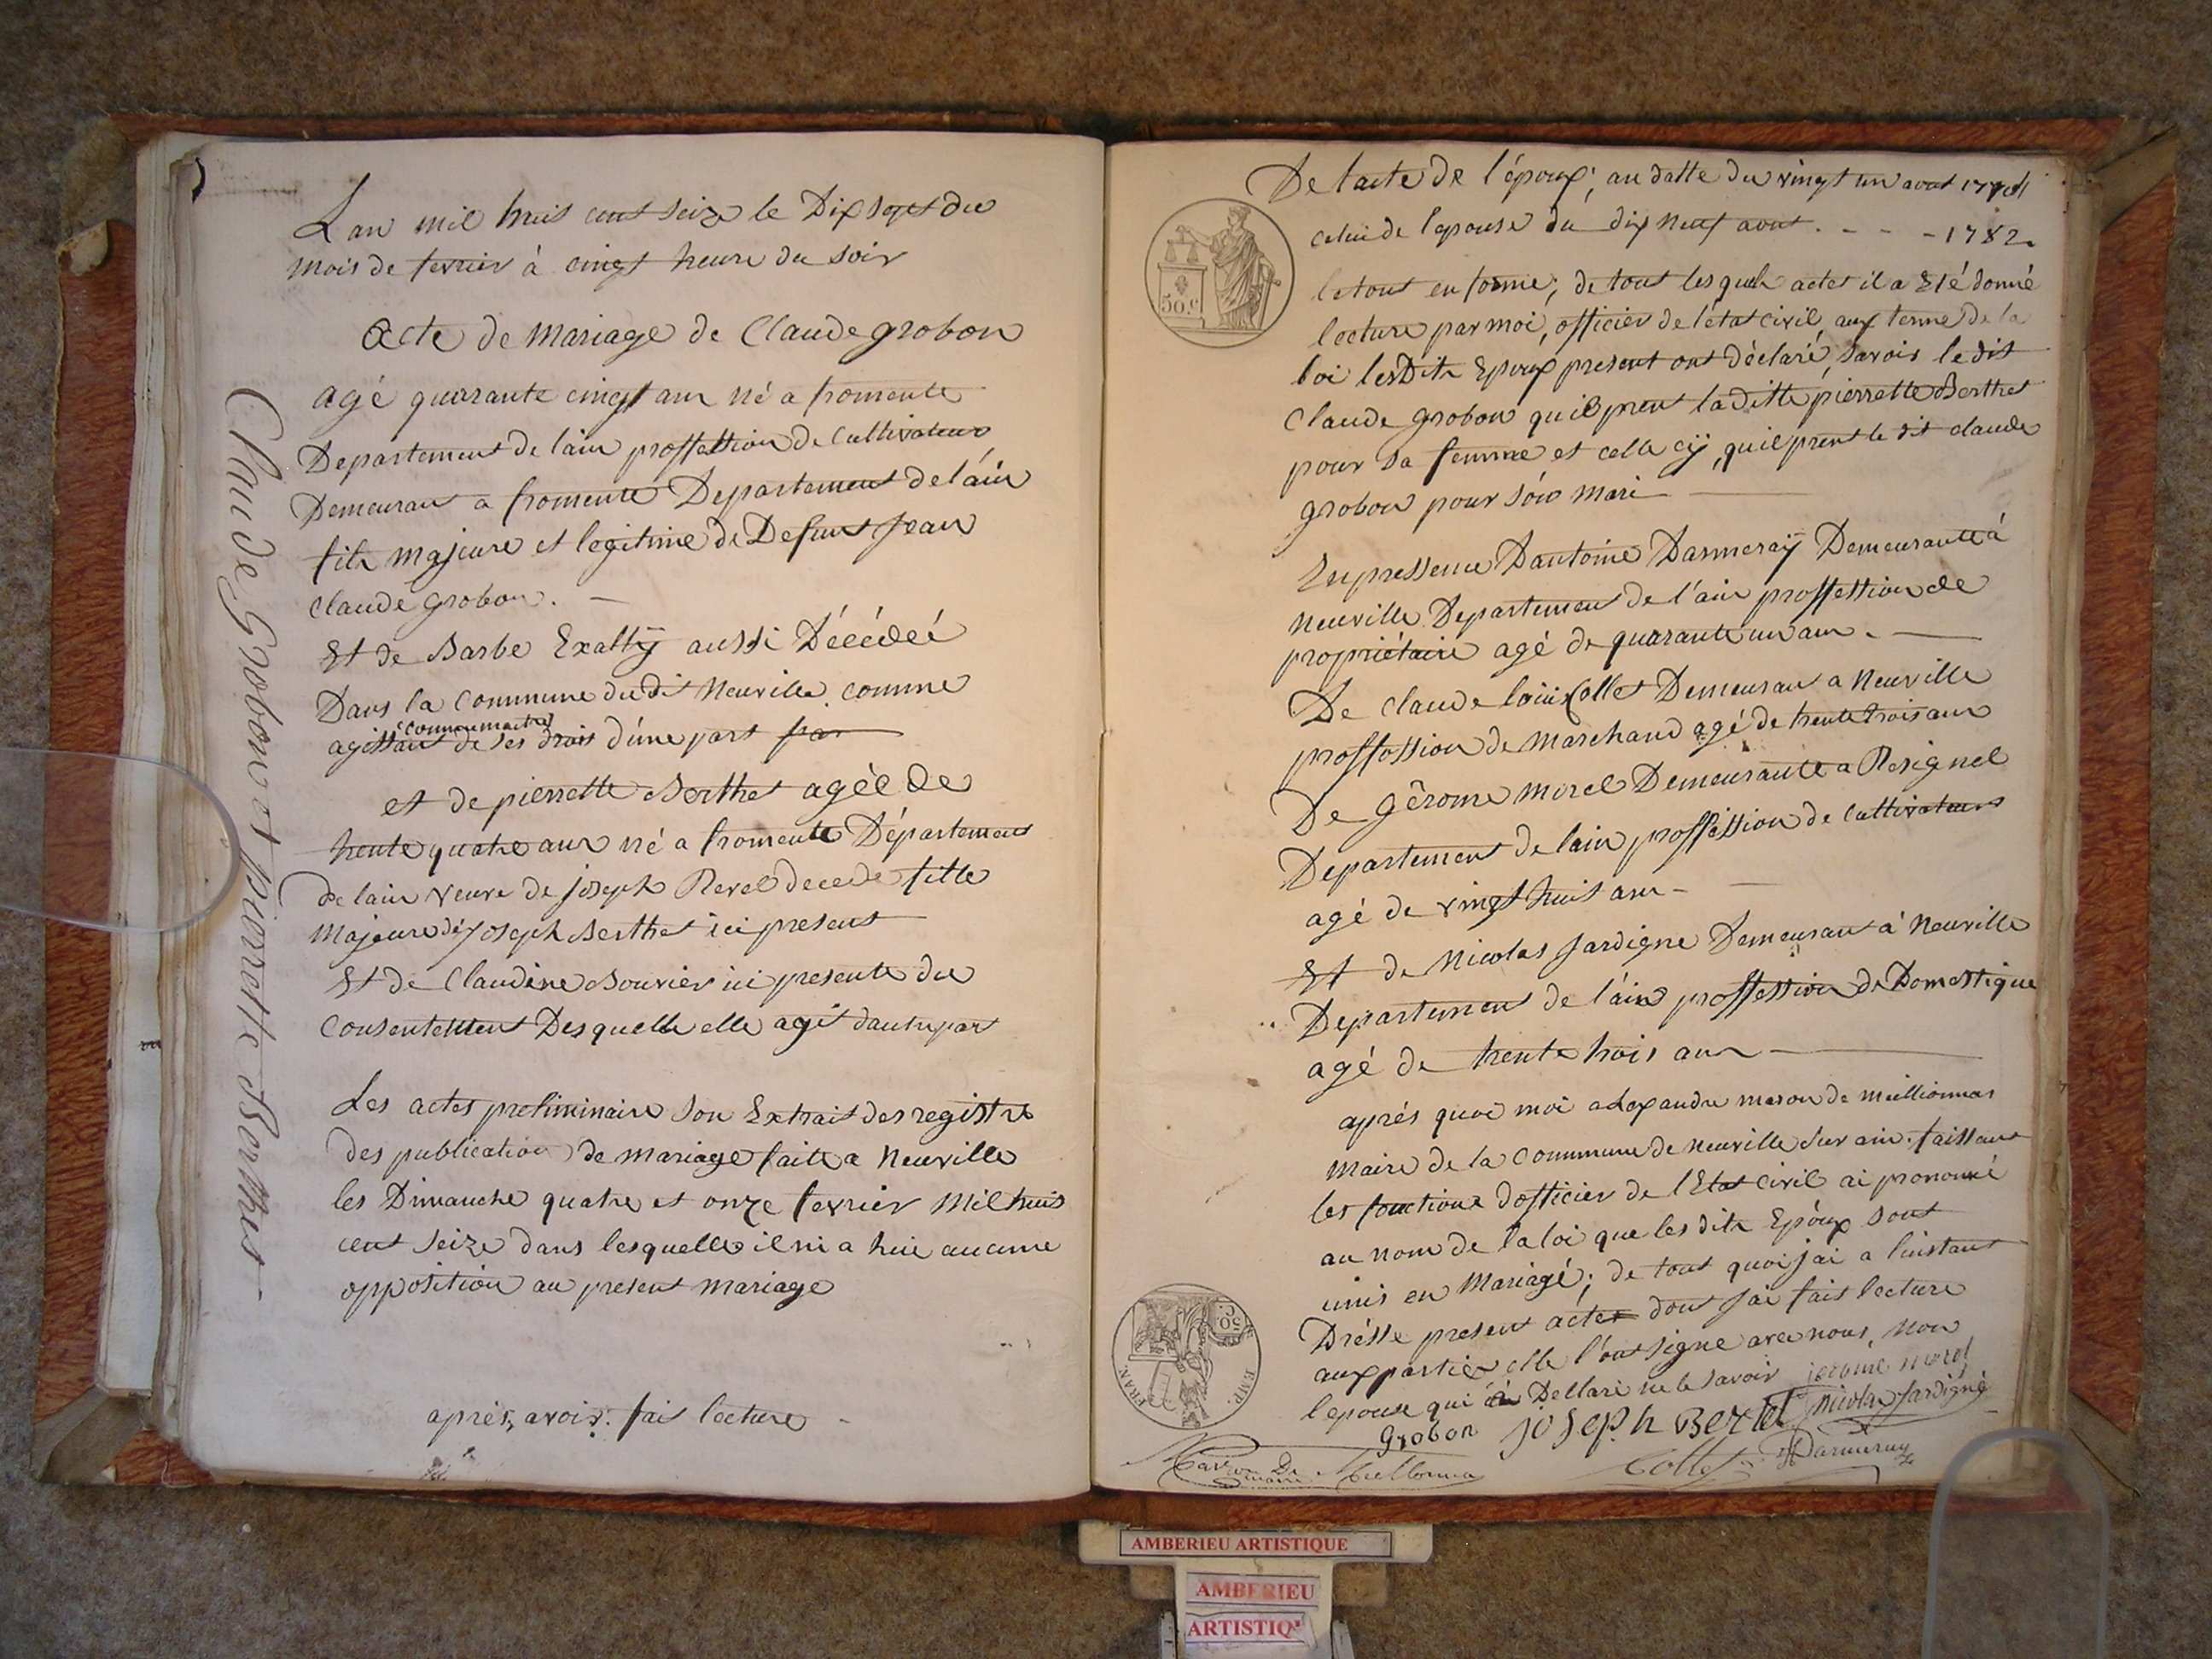 Claude Grobon et pierrette Berthet
Lan mil huit cent seize le Dix sept du
mois de fevrier à cinqt heure du soir
Acte de Mariage de Claude grobon
agé quarante cinqt ans né a fromente
Departement de lain proffettion de Cultivateur
Demeurant a fromente Departement de láin
fils majeure et legitime de Defunt Jean
claude grobon. —
Et de Barbe Exalty aussi Décédeé
Dans la Commune du dit Neuville comme
agissant de ses drois d'une part par
et de pierrette Berthet agéé de
trente quatre ans né a fromente Département
de lain veuve de joseph Revel decede fille
Majeure de joseph Berthet ici present
Et de Claudine Bouvier ici presente du
Consentement Desquelle elle agit dautrepart
Les actes preliminaire son Extrait des registre
des publication de mariage faite a Neuville
les Dimanche quatre et onze fevrier Mil huit
cent seize dans lesquelle il ni a huie aucune
opposition au present mariage
aprés, avoir. fait lecture -
De lacte de l'époux, au datte du vingt un aout
celui de lepouse du dix neuf aout. - - - 1782.
50.c
le tout en forme; de tout lesquels actes il a Eté donné
lecture par moi, officier de létat civil, aux terme de la
loi les Dits Epoux present ont déclaré, savoir le dit
Claude grobon qu il prent la ditte pierrette Berthet
pour sa femme et celle cy, qu il prent le dit claude
grobon pour són mari
En pressence Dantoine Darmeray Demeurante á
Neuville Departement de l'ain proffettion de
propriétaire agé de quarante un ans. —
De Claude louis Collet Demeurant a Neuville
proffossion de Marchand agé de trente trois ans
De Gérome Morel Demeurante a Resignel
Departement de lain proffession de Cultivateur
agé de vingt huit ans -
Et de Nicolas Jardigne Demeurant á Neuville
Departement de láin proffession de Domestique
agé de trente trois ans —
aprés quoi moi alexandre maron de meillionnas
maire de la Commune de neuville sur ain. faissant
les fonctions dofficier de l'Etat civil ai prononcé
au nom de la loi que les dits Epóux sont
unis en Mariagé; de tout quoi jai a linstant
Drésse present actes dont jai fait lecture
aux partiés, elle l'ont signe avec nous, Non
lepouse qui a Dellaré ne le savoir jerome morel
Grobon joseph Bertet Nicolas Jardigne
Maron De Meillonna Collet Darmeray
maire
50 C.
FRAN. EMP.
AMBERIEU ARTISTIQUE
AMBERIEU
ARTISTIQ